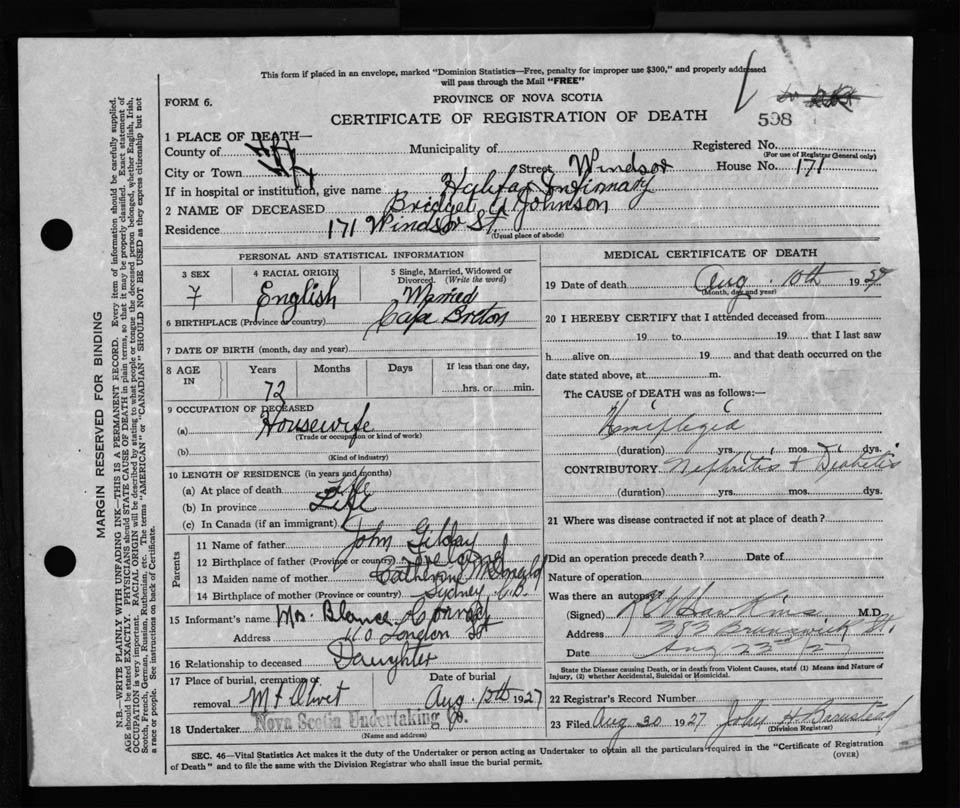 This form if placed in an envelope, marked "Dominion Statistics—Free, penalty for improper use $300," and properly addressed
will pass through the Mail "FREE"
FORM 6.
PROVINCE OF NOVA SCOTIA
CERTIFICATE OF REGISTRATION OF DEATH
598
1 PLACE OF DEATH—
County of
Municipality of
Registered No.
(For use of Registrar General only)
City or Town
Street Windsor
House No. 171
If in hospital or institution, give name Halifax Infirmary
2 NAME OF DECEASED Bridget A Johnson
Residence 171 Windsor St.
(Usual place of abode)
PERSONAL AND STATISTICAL INFORMATION
3 SEX
F
4 RACIAL ORIGIN
English
5 Single, Married, Widowed or Divorced. (Write the word)
Married
6 BIRTHPLACE (Province or country) Cape Breton
7 DATE OF BIRTH (month, day and year)
8 AGE IN
Years Months Days
If less than one day,
hrs. or min.
72
9 OCCUPATION OF DECEASED
(a) Housewife
(Trade or occupation or kind of work)
(b)
(Kind of industry)
10 LENGTH OF RESIDENCE (in years and months)
(a) At place of death Life
(b) In province Life
(c) In Canada (if an immigrant)
Parents
11 Name of father John Gilday
12 Birthplace of father (Province or country)
13 Maiden name of mother Catherine McDonald
14 Birthplace of mother (Province or country) Sydney C.B.
15 Informant's name Mrs. Conrad
Address London St
16 Relationship to deceased Daughter
17 Place of burial, cremation or
removal Mt Olivet
Date of burial
Aug. 12th 1927
18 Undertaker Nova Scotia Undertaking Co.
(Name and address)
MEDICAL CERTIFICATE OF DEATH
19 Date of death Aug. 10th 1927
(Month, day and year)
20 I HEREBY CERTIFY that I attended deceased from
19 to 19 that I last saw
h alive on 19 and that death occurred on the
date stated above, at m.
The CAUSE OF DEATH was as follows:—
Hemiplegia
(duration) yrs. mos. dys.
CONTRIBUTORY Nephritis & Diabetis
(duration) yrs. mos. dys.
21 Where was disease contracted if not at place of death?
Did an operation precede death? Date of
Nature of operation
Was there an autopsy
(Signed) Hawkins M.D.
Address Brunswick St.
Date Aug 23rd/27
State the Disease causing Death, or in death from Violent Causes, state (1) Means and Nature of
Injury, (2) whether Accidental, Suicidal or Homicidal.
22 Registrar's Record Number
23 Filed Aug 30 1927 John H Barnstead
(Division Registrar)
SEC. 46—Vital Statistics Act makes it the duty of the Undertaker or person acting as Undertaker to obtain all the particulars required in the "Certificate of Registration
of Death" and to file the same with the Division Registrar who shall issue the burial permit.
(OVER)
MARGIN RESERVED FOR BINDING
N.B.—WRITE PLAINLY WITH UNFADING INK—THIS IS A PERMANENT RECORD. Every item of information should be carefully supplied.
AGE should be stated EXACTLY. PHYSICIANS should STATE CAUSE OF DEATH in plain terms, so that it may be properly classified. Exact statement of
OCCUPATION is very important. RACIAL ORIGIN will be described by stating to what people or tongue the deceased person belonged, whether English, Irish,
Scotch, French, German, Russian, Ruthenian, etc. The terms "AMERICAN" or "CANADIAN" SHOULD NOT BE USED as they express citizenship but not
a race or people. See instructions on back of Certificate.